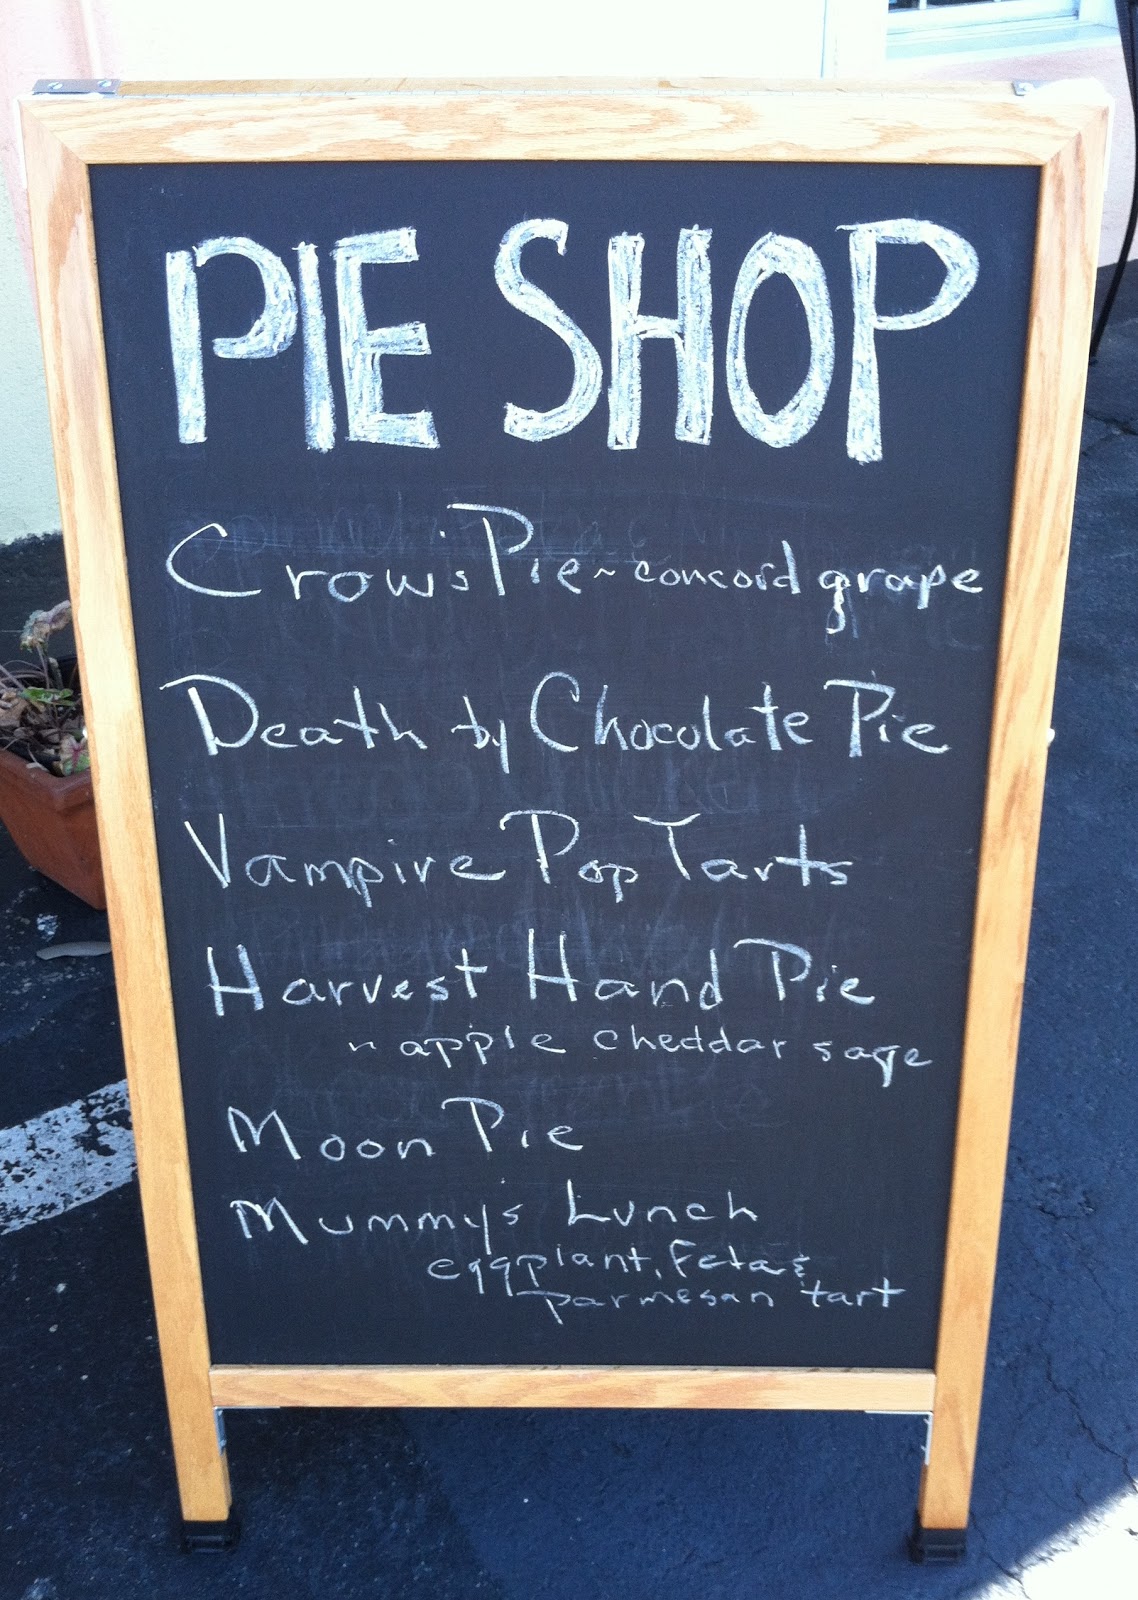 PIE SHOP
Crow's Pie ~ concord grape
Death by Chocolate Pie
Vampire Pop Tarts
Harvest Hand Pie
~ apple cheddar sage
Moon Pie
Mummy's Lunch
eggplant, feta &
parmesan tart